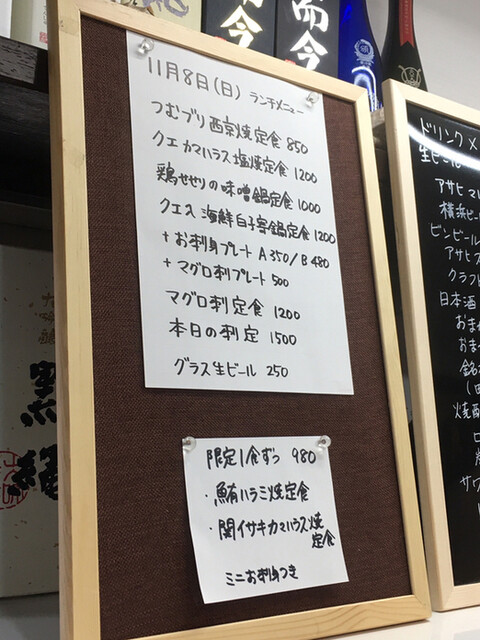 而今
而今
11月8日(日) ランチメニュー
つむブリ西京焼定食 850
クエカマハラス塩焼定食 1200
鶏せせりの味噌鍋定食 1000
クエ入 海鮮白子寄鍋定食 1200
+お刺身プレート A350/B480
+マグロ刺プレート 500
マグロ刺定食 1200
本日の刺定 1500
グラス生ビール 250
限定1食ずつ 980
・鮪ハラミ焼定食
・関イサキカマハラス焼
定食
ミニお刺身つき
ドリンクメ
生ビール
アサヒマル
横浜ビー
ビンビール
アサヒス
クラフト
日本酒
おまか
おまか
銘
焼酎
サワ